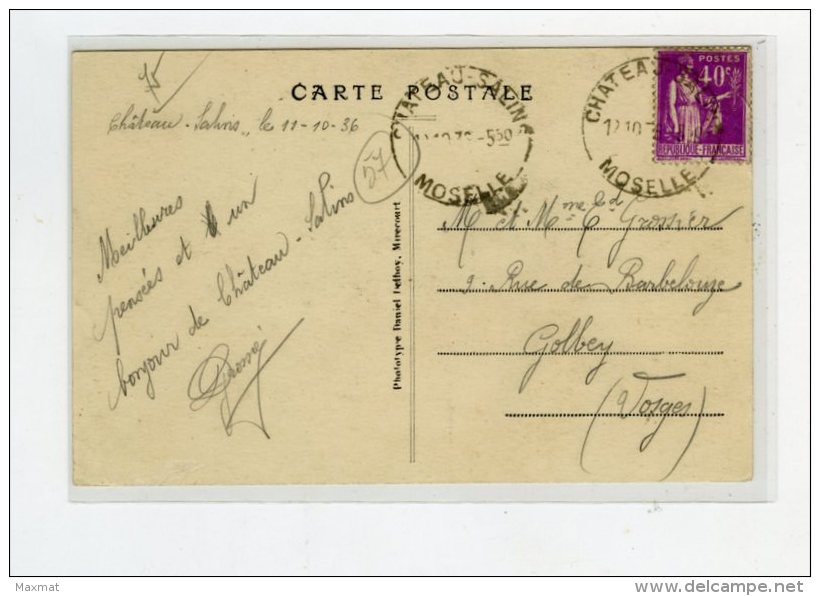 75
CARTE POSTALE
Château-Salins, le 11-10-36
57
Meilleures
pensées et un
bonjour de Château-Salins
CHATEAU-SALINS
5 30
MOSELLE
CHATEAU-SALINS
MOSELLE
POSTES
40c
REPUBLIQUE-FRANÇAISE
Phototype Daniel Delboy, Mirecourt
M et Mme Ed Grosnier
9. Rue de Barbelouze
Golbey
(Vosges)
Maxmat
delcampe.net